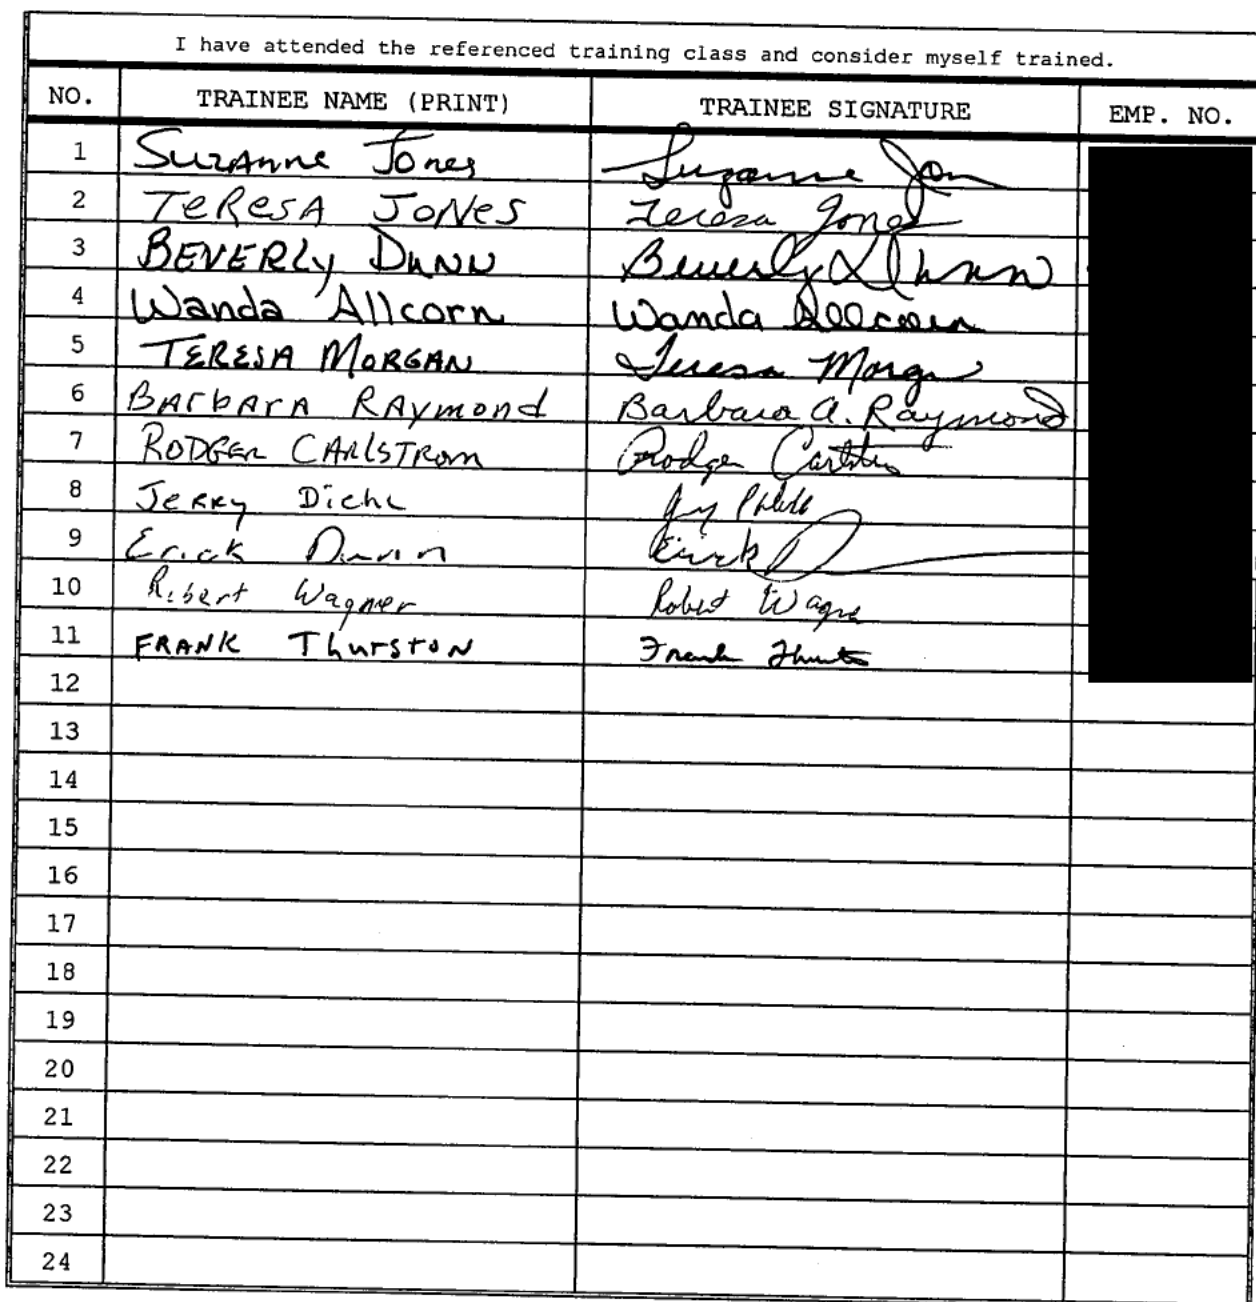 I have attended the referenced training class and consider myself trained.
NO. TRAINEE NAME (PRINT) TRAINEE SIGNATURE EMP. NO.
1 Suzanne Jones Suzanne Jon
2 TeResA JoNes Teresa Jones
3 BEVERLy DuNN Beverly Dunn
4 Wanda Allcorn Wanda Allcorn
5 TERESA MORGAN Teresa Morgan
6 BArbArA RAymond Barbara A. Raymond
7 RODGER CARLSTROM Rodger
8 JeRRy Diehl
9 Erick Erick
10 Robert Wagner Robert Wagner
11 FRANK ThursTON Frank
12
13
14
15
16
17
18
19
20
21
22
23
24